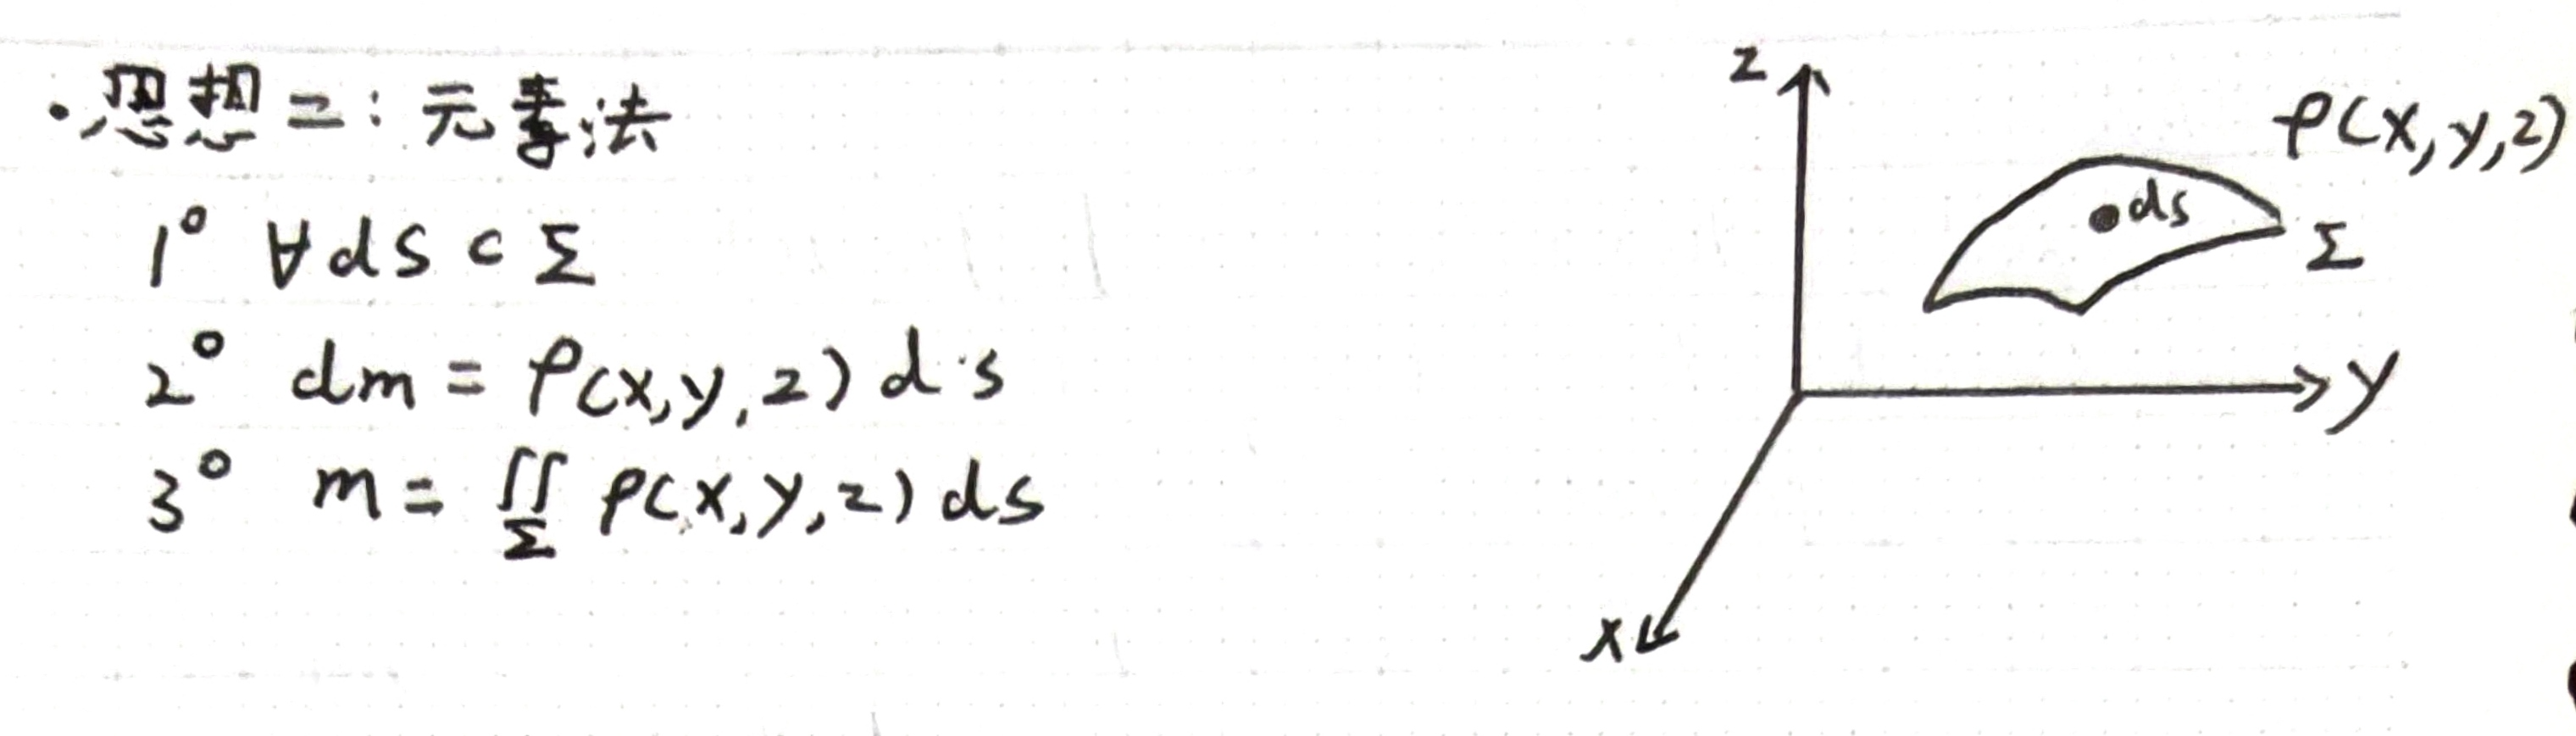 ·思想二:元素法
1° ∀ds⊂Σ
2° dm=ρ(x,y,z)ds
3° m=∬_Σ ρ(x,y,z)ds
z
ρ(x,y,z)
ds
Σ
y
x